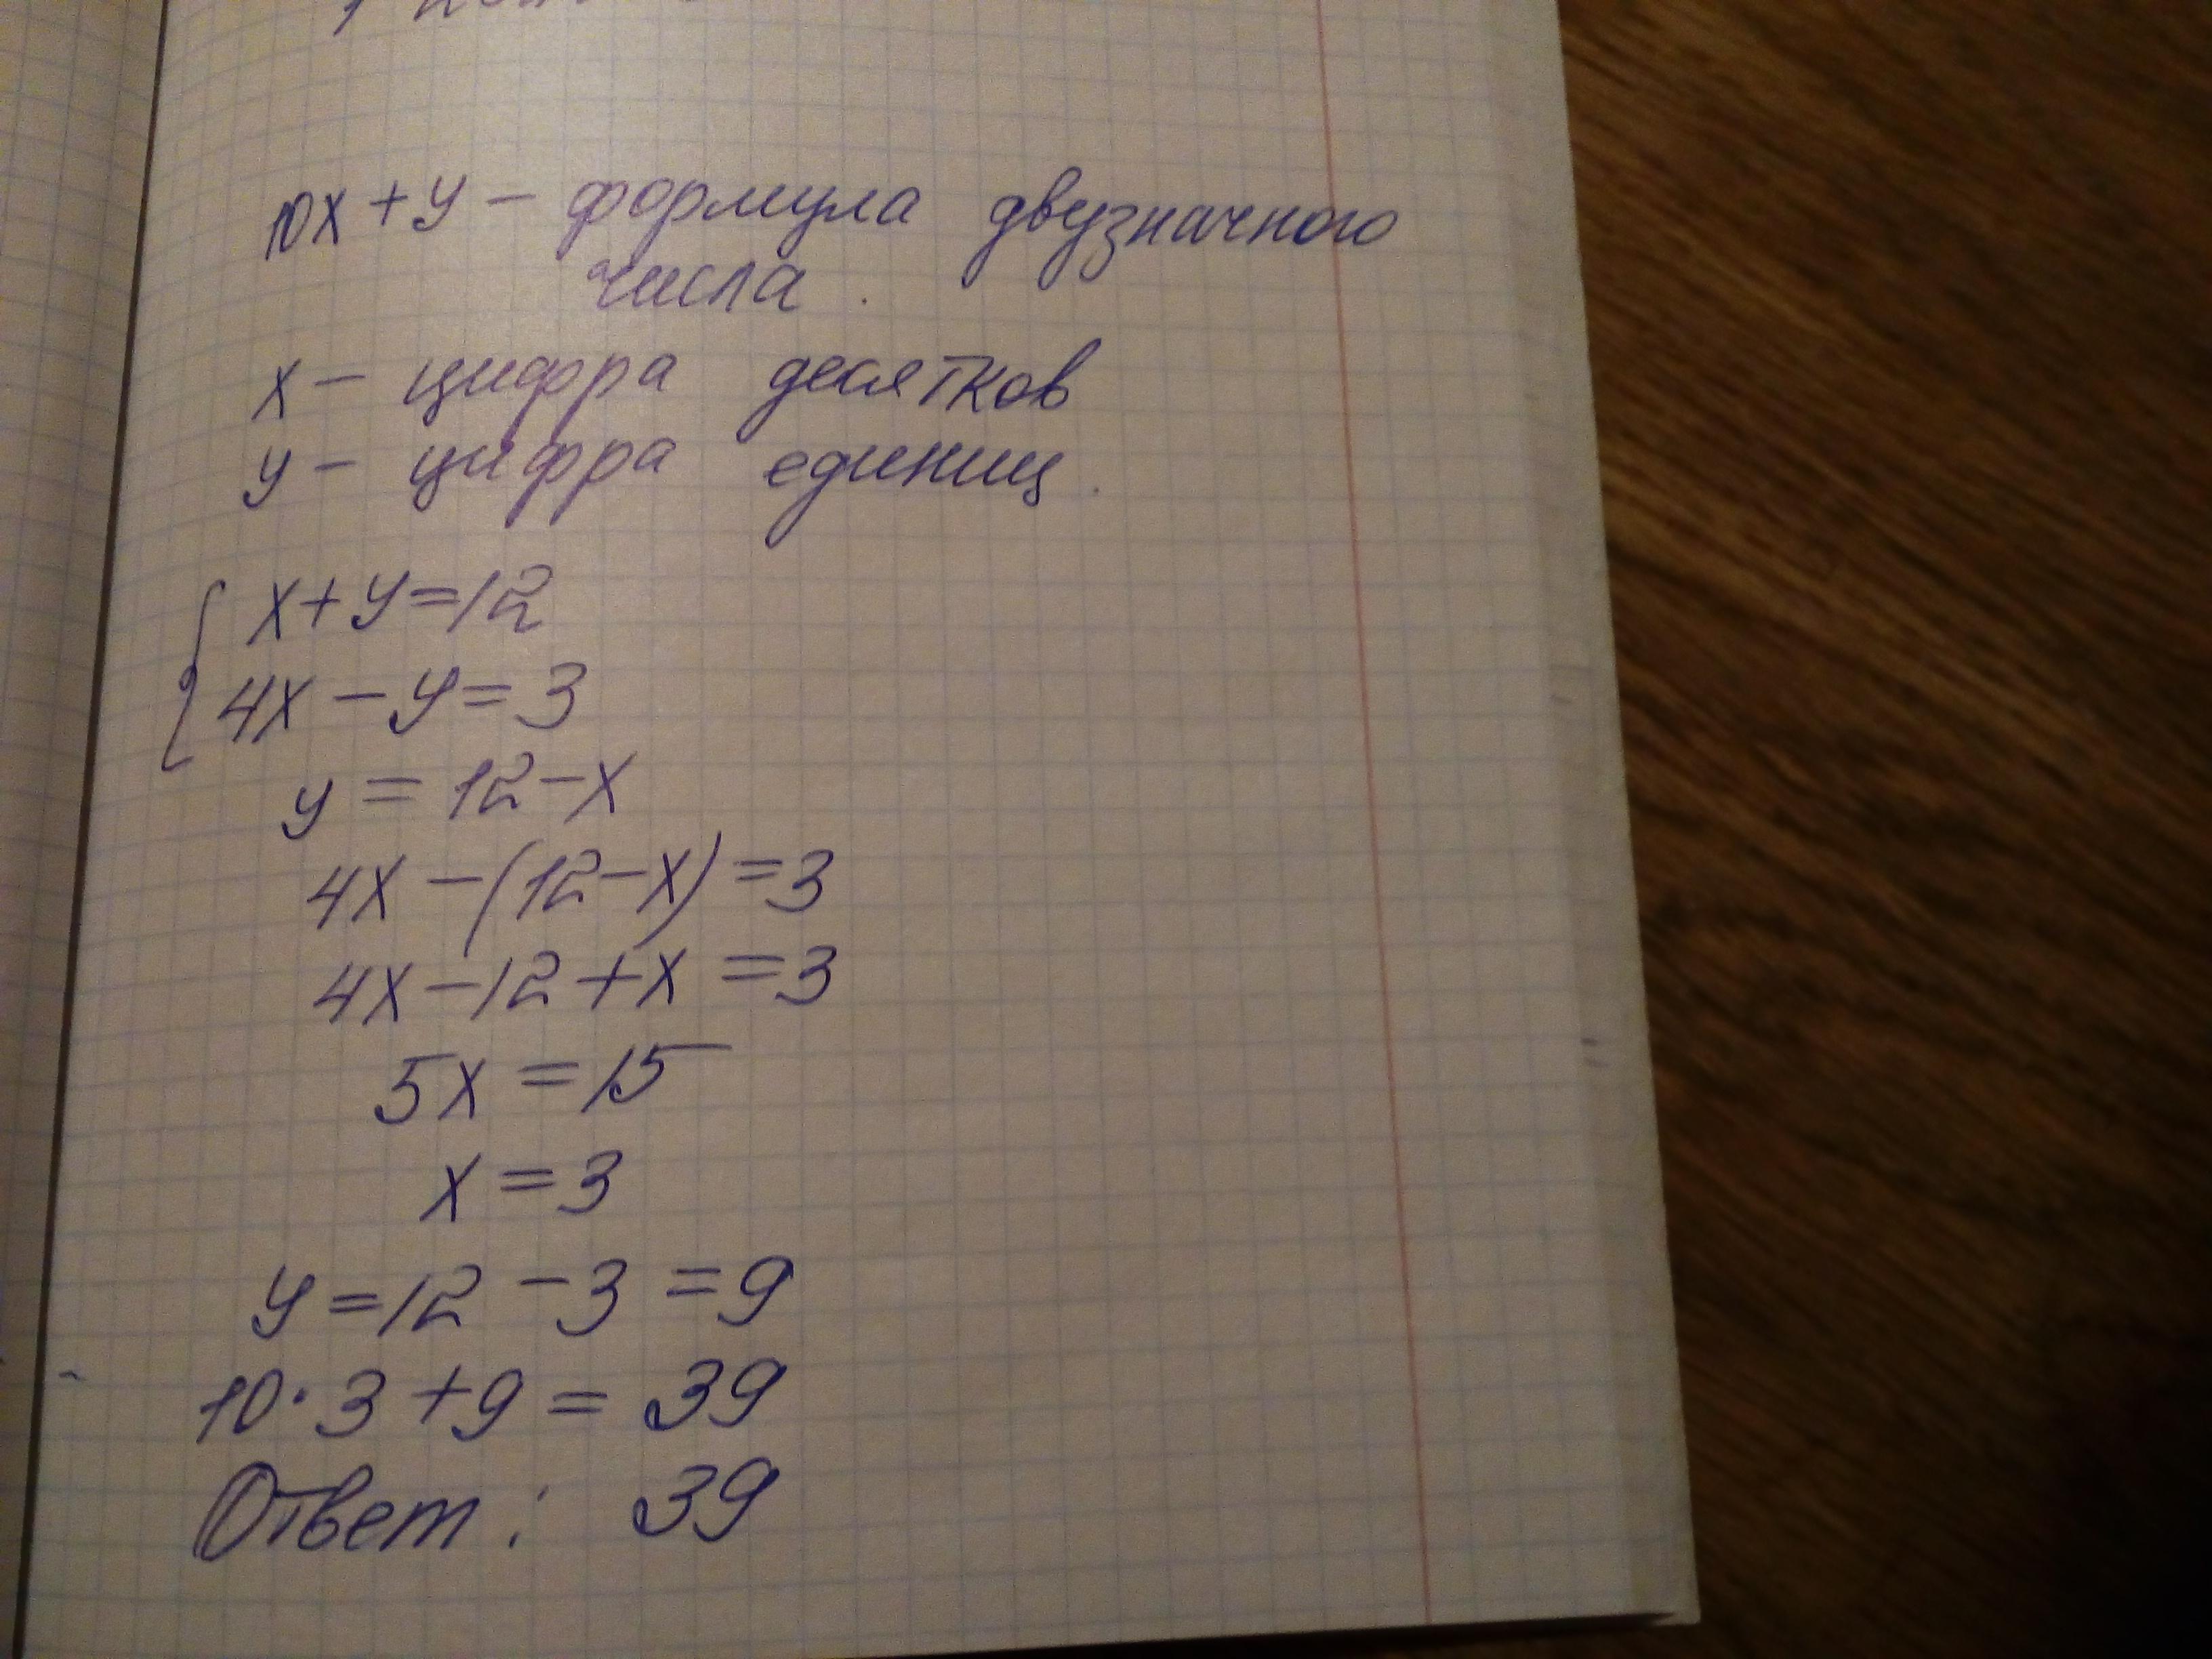 10x + y – формула двузначного
числа.
x – цифра десятков
y – цифра единиц.
x + y = 12
4x – y = 3
y = 12 – x
4x – (12 – x) = 3
4x – 12 + x = 3
5x = 15
x = 3
y = 12 – 3 = 9
10 · 3 + 9 = 39
Ответ: 39